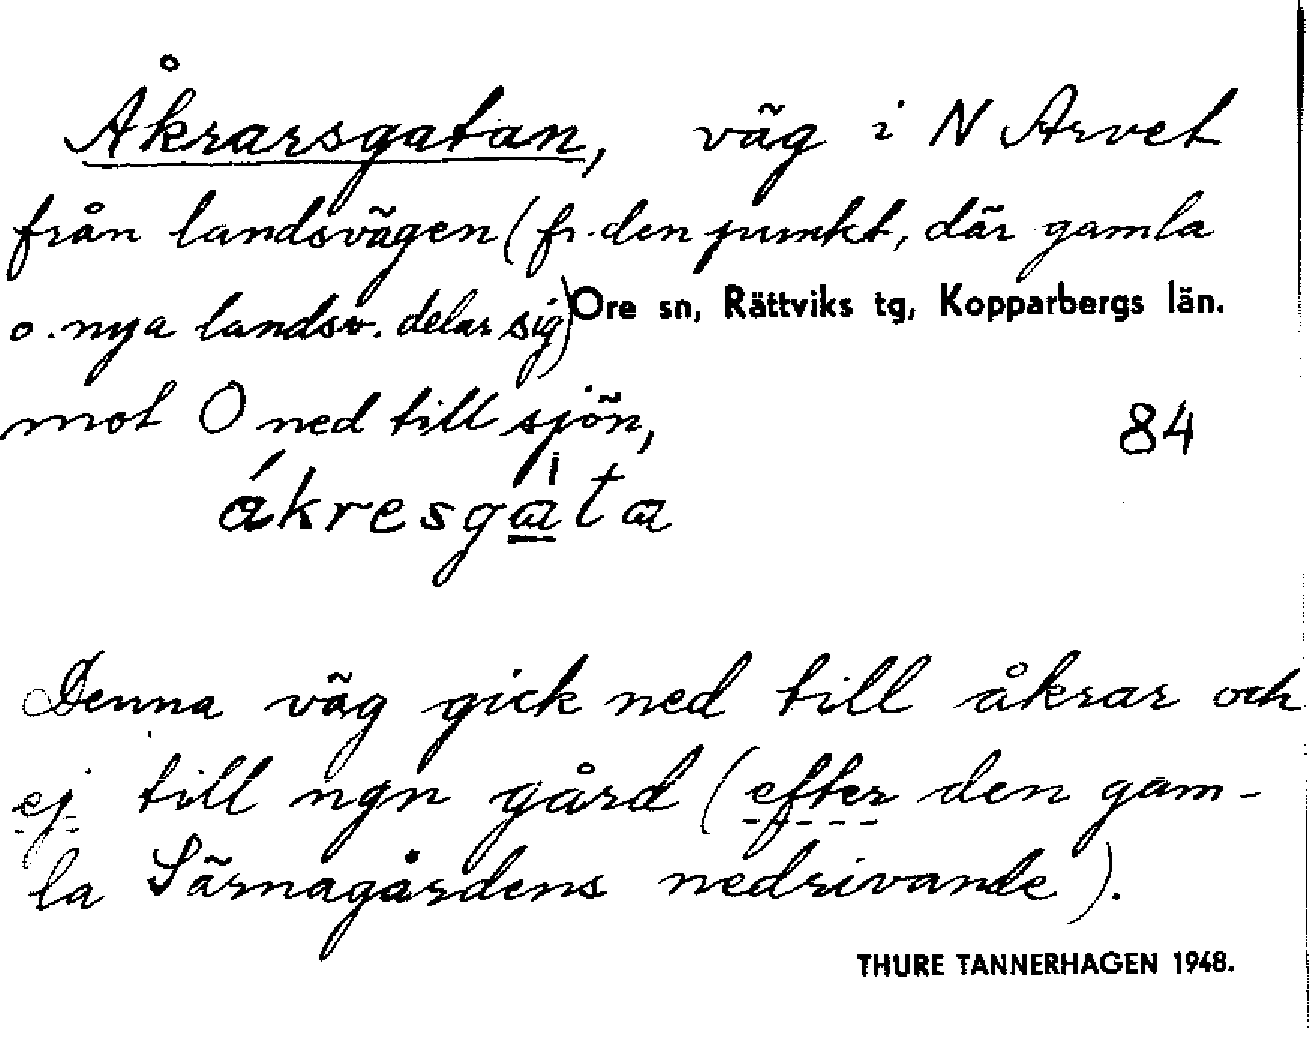 Åkrarsgatan, väg i N Arvet
från landsvägen (fr. den punkt, där gamla
o. nya landsv. delar sig) Ore sn, Rättviks tg, Kopparbergs län.
mot O ned till sjön,
84
ákresga̲ta
Denna väg gick ned till åkrar och
ej till ngn gård (efter den gam-
la Särnagårdens nedrivande).
THURE TANNERHAGEN 1948.